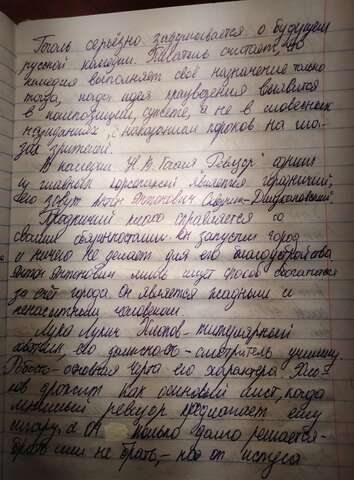 Гоголь серьёзно задумывается о будущем
русской комедии. Писатель считает, что
комедия выполняет своё назначение только
тогда, когда идея произведения выявится
в композиции, сюжете, а не в словесных
с наказанием пороков на гла-
зах зрителей.
В комедии Н. В. Гоголя "Ревизор" одним
из главных персонажей является городничий,
его зовут Антон Антонович Сквозник-Дмухановский.
Городничий плохо справляется со
своими обязанностями. Он запустил город
и ничего не делает для его благоустройства
Антон Антонович лишь ищут способ обогатиться
за счёт города. Он является жадным и
ненасытным человеком
Лука Лукич Хлопов - титулярный
советник, его должность - смотритель училищ.
Робость - основная черта его характера. Хло-
пов дрожит как осиновый лист, когда
мнимый ревизор предлагает ему
сигару. а Он только долго решается -
брать или не брать, - но от испуга